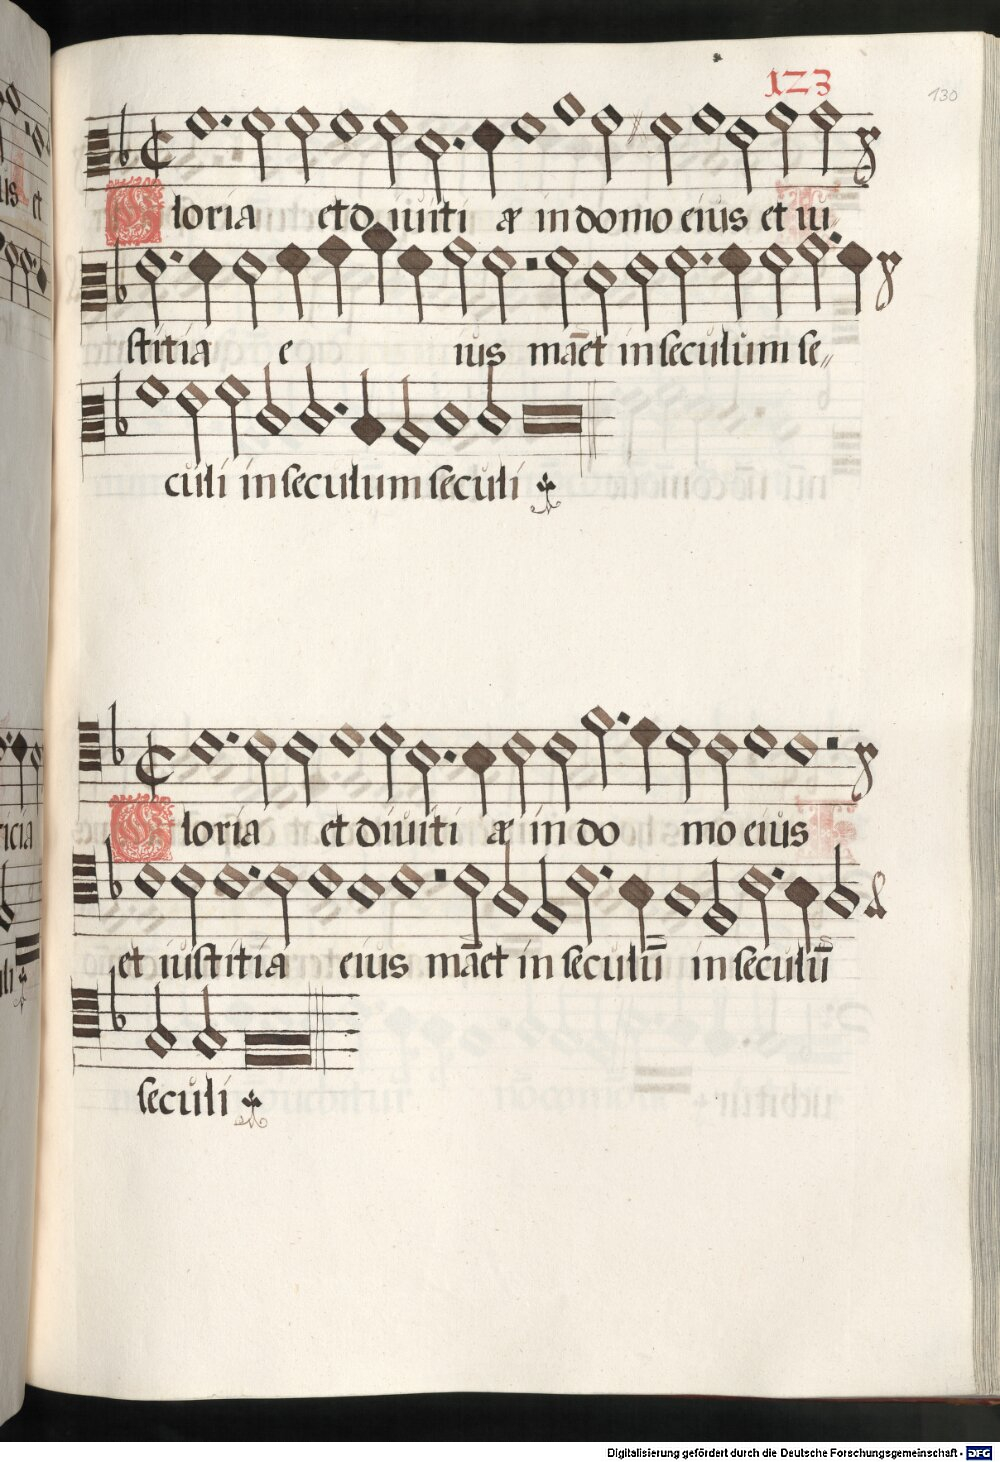 123
130
Gloria et diuiti æ in domo eius et iu
stitia e ius māet in seculum se„
culi in seculum seculi
Gloria et diuiti æ in do mo eius
et iustitia eius māet in seculū in seculū
seculi
Digitalisierung gefördert durch die Deutsche Forschungsgemeinschaft - DFG